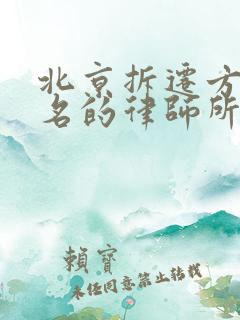 北京拆遷方
名的律師所
賴寶
未经同意禁止转载